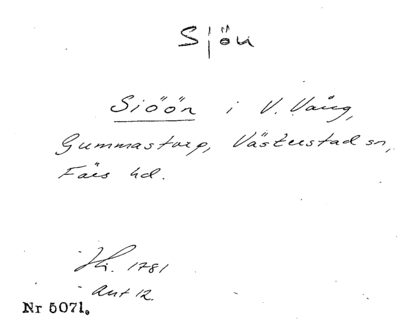 Sjön
Siöön i V. Vång,
Gummastorp, Västerstad sn,
Färs hd.
Hi. 1781
Akt 12.
Nr 5071.